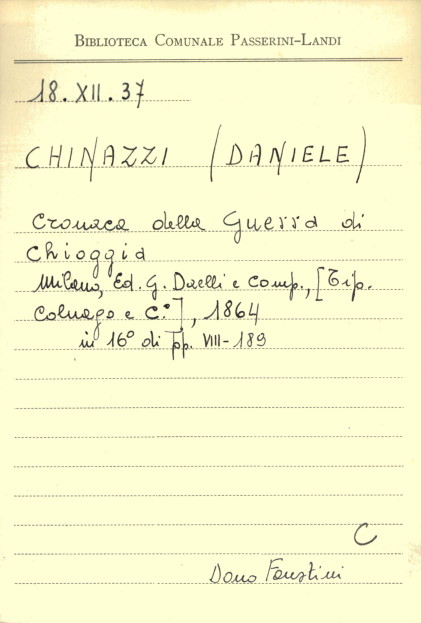 BIBLIOTECA COMUNALE PASSERINI-LANDI
18.XII.37
CHINAZZI (DANIELE)
Cronaca della Guerra di
Chioggia
Milano, Ed. G. Daelli e comp., [Tip.
Colnago e C.°], 1864
in 16° di pp. VIII-189
C
Dono Faustini